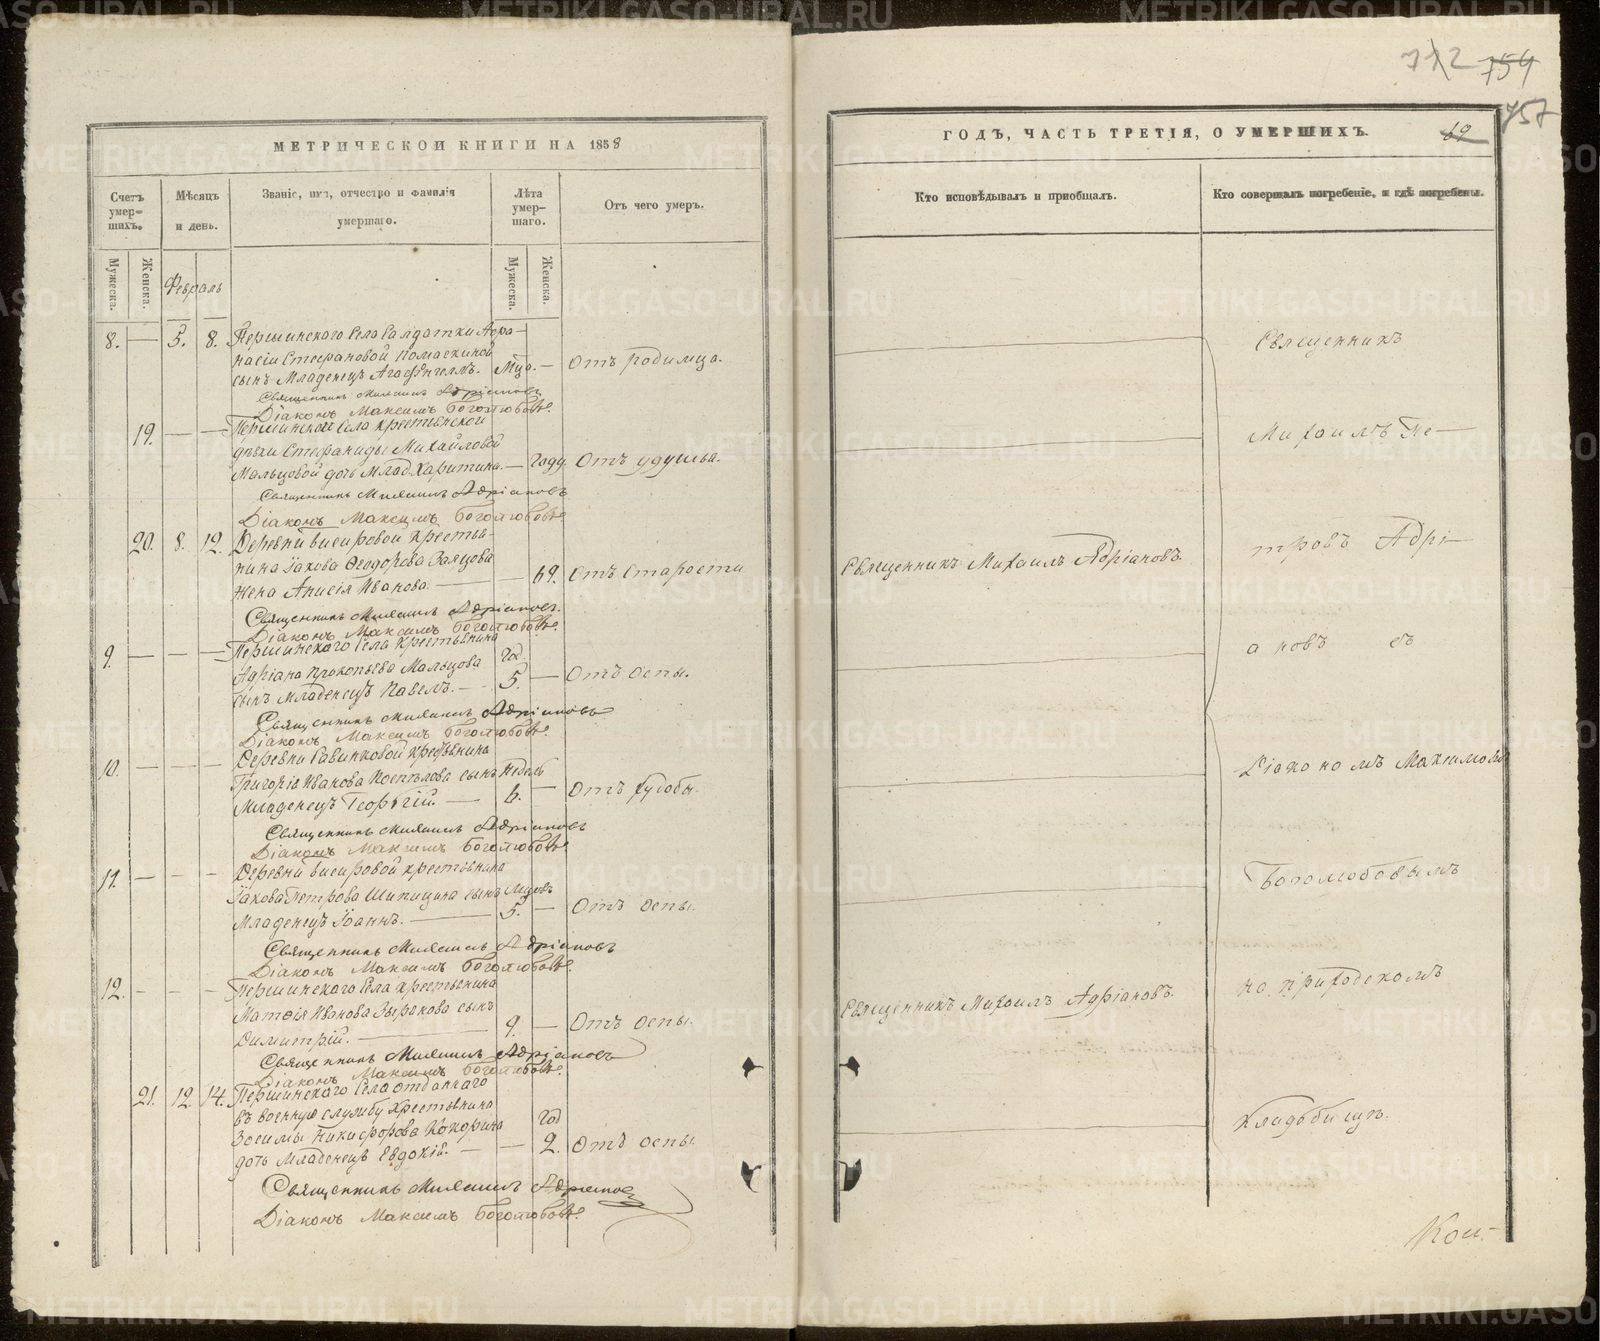 МЕТРИЧЕСКОЙ КНИГИ НА 1858
Счетъ умер=шихъ.
Мѣсяцъ и день.
Званіе, имя, отчество и фамилія умершаго.
Лѣта умер-шаго.
Отъ чего умеръ.
Мужеска.
Женска.
Мужеска.
Женска.
Февраль
8. — 5. 8. Першинскаго Села Салдатки Афа-
насіи Стефановой
сынъ Младенецъ Агафангелъ. Мца. — Отъ родимца.
Священникъ Михаилъ Адріановъ
Діаконъ Максимъ Боголюбовъ.
19. — — Першинскаго Села крестьянской
дѣвки Стефаниды Михайловой
Мальцовой дочь Млад. Харитина. — Году. Отъ удушья.
Священникъ Михаилъ Адріановъ
Діаконъ Максимъ Боголюбовъ
20. 8. 12. Деревни крестья-
нина Іакова Ѳеодорова Заяцова
жена Анисія Иванова. — — 69. Отъ Старости
Священникъ Михаилъ Адріановъ.
Діаконъ Максимъ Боголюбовъ.
9. — — — Першинскаго Села крестьянина
Адріана Прокопьева Мальцова год
сынъ Младенецъ Павелъ. — 5. — Отъ оспы.
Священникъ Михаилъ Адріановъ
Діаконъ Максимъ Боголюбовъ.
10. — — — Деревни Савинковой крестьянина
Григорія Иванова Поспѣлова сынъ недель
Младенецъ Георгій. — 6. — Отъ худобы.
Священникъ Михаилъ Адріановъ
Діаконъ Максимъ Боголюбовъ.
11. — — — Деревни крестьянина
Іакова Петрова Шипицина сынъ Мцовъ
Младенецъ Іоаннъ. — 5. — Отъ оспы.
Священникъ Михаилъ Адріановъ
Діаконъ Максимъ Боголюбовъ.
12. — — — Першинскаго Села крестьянина
Матѳія Иванова Зырянова сынъ
Димитрій. — 9. — Отъ оспы.
Священникъ Михаилъ Адріановъ
Діаконъ Максимъ Боголюбовъ.
21. 12. 14. Першинскаго Села отданнаго
въ военную службу крестьянина
Зосимы Никифорова Кокорина год
дочь Младенецъ Евдокій. — — 2. Отъ оспы.
Священникъ Михаилъ Адріановъ
Діаконъ Максимъ Боголюбовъ.
712 754
757
ГОДЪ, ЧАСТЬ ТРЕТІЯ, О УМЕРШИХЪ. 69
Кто исповѣдывалъ и пріобщалъ.
Кто совершалъ погребеніе, и гдѣ погребены.
Священникъ Михаилъ Адріановъ
Священникъ Михаилъ Адріановъ.
Священникъ
Михаилъ Пе-
тровъ Адрі-
ановъ съ
Діакономъ Максимомъ
Боголюбовымъ
на приходскомъ
кладбищѣ.
METRIKI.GASO-URAL.RU